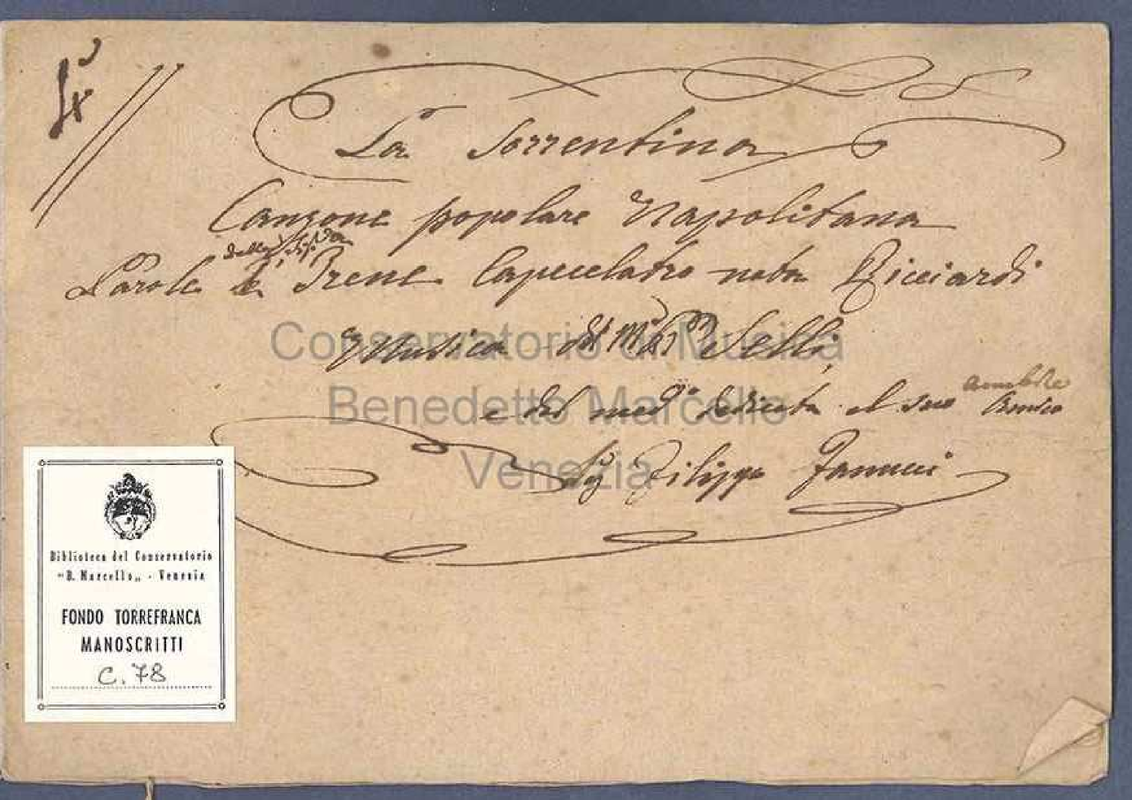 La Sorrentina
Canzone popolare Napolitana
della Sig.ra
Parole di Irene Capecelatro nata Ricciardi
Musica del M.o Selli,
e dal med.o dedicata al suo amabile Amico
Sig Filippo Janucci
Conservatorio di Musica
Benedetto Marcello
Venezia
Biblioteca del Conservatorio
"B. Marcello„ - Venezia
FONDO TORREFRANCA
MANOSCRITTI
C. 78